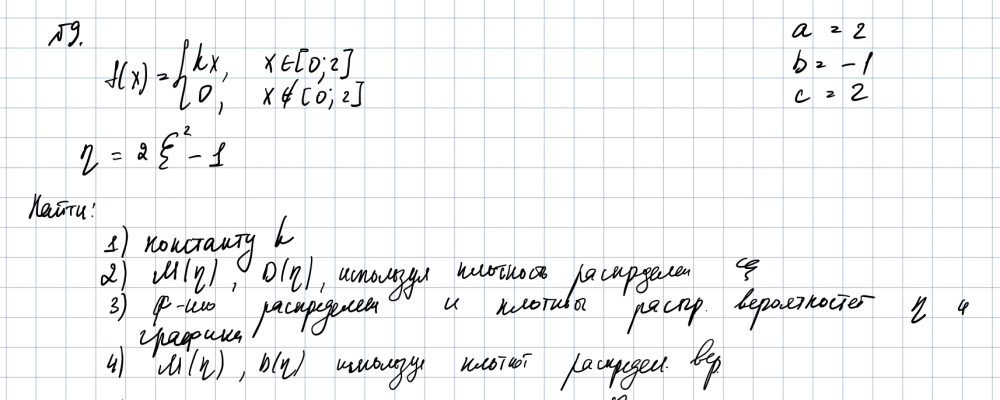 №9.
f(x) = { kx, x ∈ [0; 2]
0, x ∉ [0; 2]
a = 2
b = -1
c = 2
η = 2ξ² - 1
Найти:
1) константу k
2) M(η), D(η), используя плотность распределен ξ
3) ф-ию распределен и плотнвы распр. вероятностей η и
графики
4) M(η), D(η) используя плотност распредел. вер.